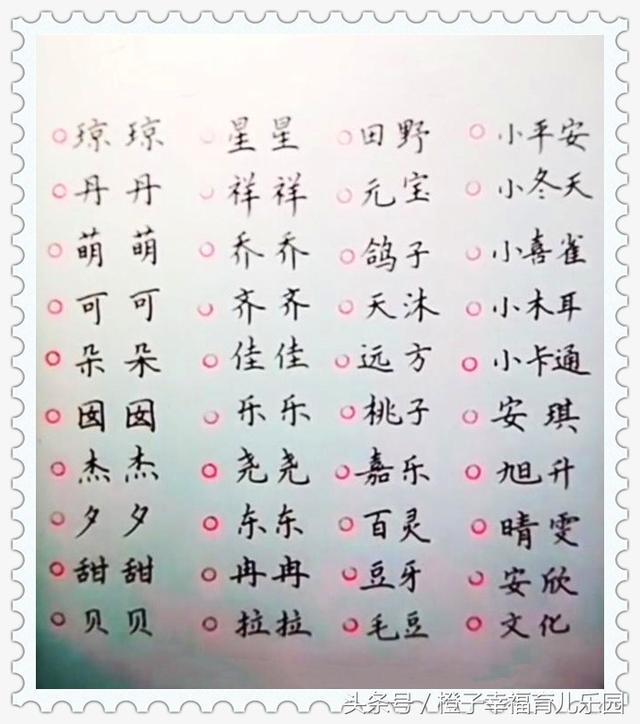 琼琼 星星 田野 小平安
丹丹 祥祥 元宝 小冬天
萌萌 乔乔 鸽子 小喜雀
可可 齐齐 天沐 小木耳
朵朵 佳佳 远方 小卡通
囡囡 乐乐 桃子 安琪
杰杰 尧尧 嘉乐 旭升
夕夕 东东 百灵 晴雯
甜甜 冉冉 豆牙 安欣
贝贝 拉拉 毛豆 文化
头条号/橙子幸福育儿乐园